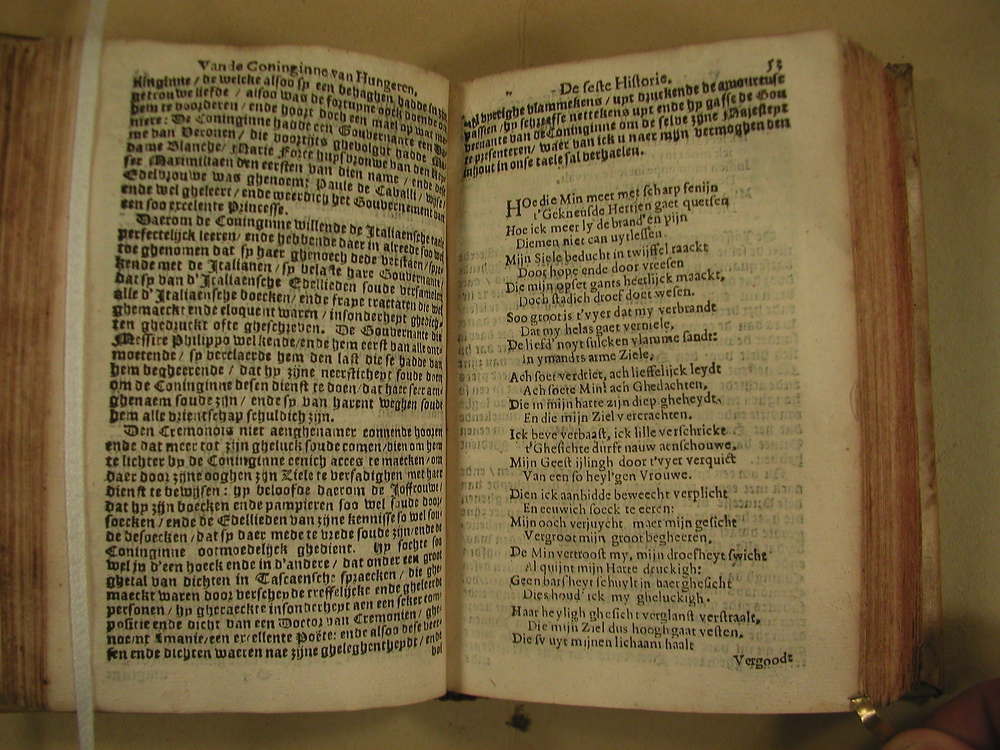 Van de Coninginne van Hungeren,
ninginne / de welcke alsoo sy een behaghen hadde in zijn
getrouwe liefde / alsoo was de fortuyne oock doende om
hem te voorderen / ende hoort doch een mael op wat ma-
niere: De Coninginne hadde een Gouvernante een Da-
me van Veronen / die voortijts ghevolght hadde Ma-
dame Blanche / Marie Force huysvrouwe van den Key-
ser Maximiliaen den eersten van dien name / ende dese
Edelvrouwe was ghenoemt Paule de Cavalli / wijse /
ende wel gheleert / ende weerdich het Gouvernement van
een soo excelente Princesse.
Daerom de Coninginne willende de Italiaensche tale
perfectelijck leeren / ende hebbende daer in alreede soo wel
toe ghenomen dat sy haer ghenoech dede verstaen / spre-
kende met de Italianen / sy belaste hare Gouvernante /
dat sy van d'Italiaensche Edellieden soude versamelen
alle d'Italiaensche boecken / ende fraye tractaten die wel
ghemaeckt ende eloquent waren / insonderheyt ghedich-
ten ghedruckt ofte gheschreven. De Gouvernante die
Messire Philippo wel kende / ende hem eerst van alle ont-
moetende / sy verclaerde hem den last die se hadde van
hem begheerende / dat hy zijne neersticheyt soude doen
om de Coninginne desen dienst te doen / dat hare seer aen-
ghenaem soude zijn / ende sy van harent weghen soude
hem alle vrientschap schuldich zijn.
Den Cremonois niet aenghenamer connende hooren
ende dat meer tot zijn gheluck soude comen / dien om hem
te lichter by de Coninginne eenich acces te maecken / om
daer door zijne ooghen zijn Ziele te versadighen met hare
dienst te bewijsen: hy beloofde daerom de Joffrouwe /
dat hy zijn boecken ende pampieren soo wel soude door-
soecken / ende de Edellieden van zijne kennisse so wel sou-
de besoecken / dat sy daer mede te vrede soude zijn / ende de
Coninginne ootmoedelijck ghedient. Hy sochte soo
wel in d'een hoeck ende in d'andere / dat onder een groot
ghetal van dichten in Tascaensche spraecken / die ghe-
maeckt waren door verscheyde treffelijcke ende gheleerde
personen / hy gheraeckte insonderheyt aen een seker com-
positie ende dicht van een Doctor van Cremonien / ghe-
noemt Amanie / een excellente Poëte: ende alsoo dese veer-
sen ende dichten waeren nae zijne gheleghentheydt / ende
vol
De seste Historie. 53
vol vuerighe vlammekens / uyt druckende de amoureuse
passien / hy schreefse nettekens uyt ende hy gafse de Gou-
vernante van de Coninginne om de selve zijne Majesteyt
te presenteren / waer van ick u naer mijn vermoghen den
inhout in onse taele sal verhaelen.
HOe die Min meer met scharp fenijn
t'Gekneusde Hertjen gaet quetsen
Hoe ick meer ly de brand' en pijn
Diemen niet can uytlessen.
Mijn Siele beducht in twijffel raackt
Door hope ende door vreesen
Die mijn opset gants heerlijck maackt,
Doch stadich droef doet wesen.
Soo groot is t'vyer dat my verbrandt
Dat my helas gaet verniele,
De liefd' noyt sulcken vlamme sandt:
In ymandts arme Ziele,
Ach soet verdriet, ach lieffelijck leydt
Ach soete Min! ach Ghedachten,
Die in mijn harte zijn diep gheheydt,
En die mijn Ziel vercrachten.
Ick beve verbaast, ick lille verschricke
t'Ghesichte durft nauw aenschouwe,
Mijn Geest ijlingh door t'vyer verquict
Van een so heyl'gen Vrouwe.
Dien ick aanbidde beweecht verplicht
En eeuwich soeck te eeren:
Mijn ooch verjuycht, maer mijn gesicht
Vergroot mijn groot begheeren,
De Min vertroost my, mijn droefheyt swicht
Al quijnt mijn Hatte druckigh:
Geen barsheyt schuylt in haer ghesicht
Dies houd' ick my gheluckigh.
Haar heyligh ghesicht verglanst verstraalt,
Die mijn Ziel dus hoogh gaat vesten,
Die sy uyt mijnen lichaam haalt
Vergoodt